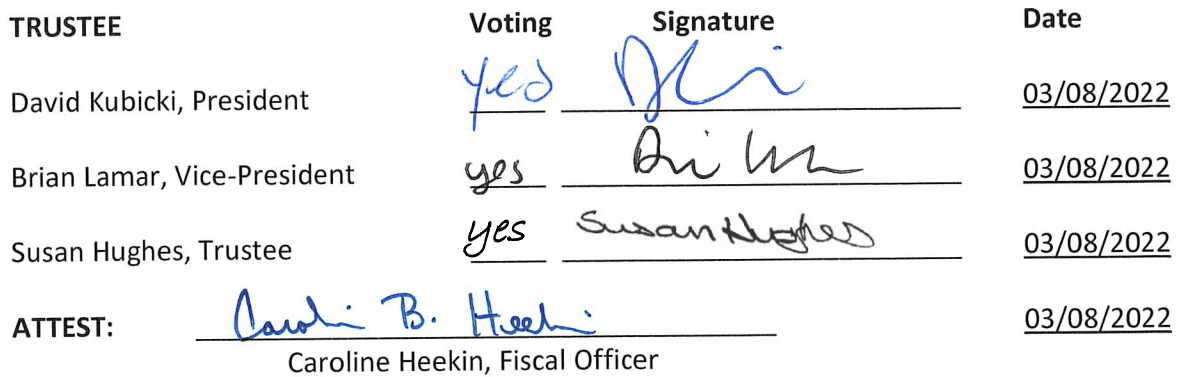 TRUSTEE Voting Signature Date
David Kubicki, President yes 03/08/2022
Brian Lamar, Vice-President yes 03/08/2022
Susan Hughes, Trustee yes Susan Hughes 03/08/2022
ATTEST: Caroline B. Heekin 03/08/2022
Caroline Heekin, Fiscal Officer